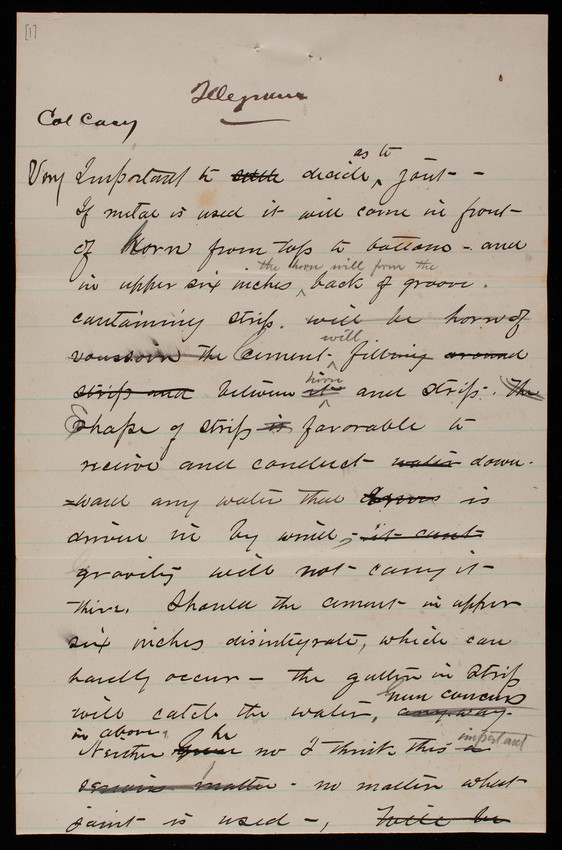 [1]
Telegram
Col Casey
as to
Very Important to decide ^ joint -
If metal is used it will come in front
of horn from top to bottom - and
the horn will form the
in upper six inches ^ back of groove.
containing strip. will be horn of
will
voussoir the Cement ^ filling around
horn
strip and between it and strip. The
Shape of strip is favorable to
receive and conduct water down-
-ward any water that is
driven in by wind, - it cant
gravity will not carry it
there. Should the cement in upper
six inches disintegrate, which can
hardly occur - the gutter in strip
will catch the water, any way.
in above, he important
Neither no I think this a
serious matter - no matter what
joint is used -, Will be